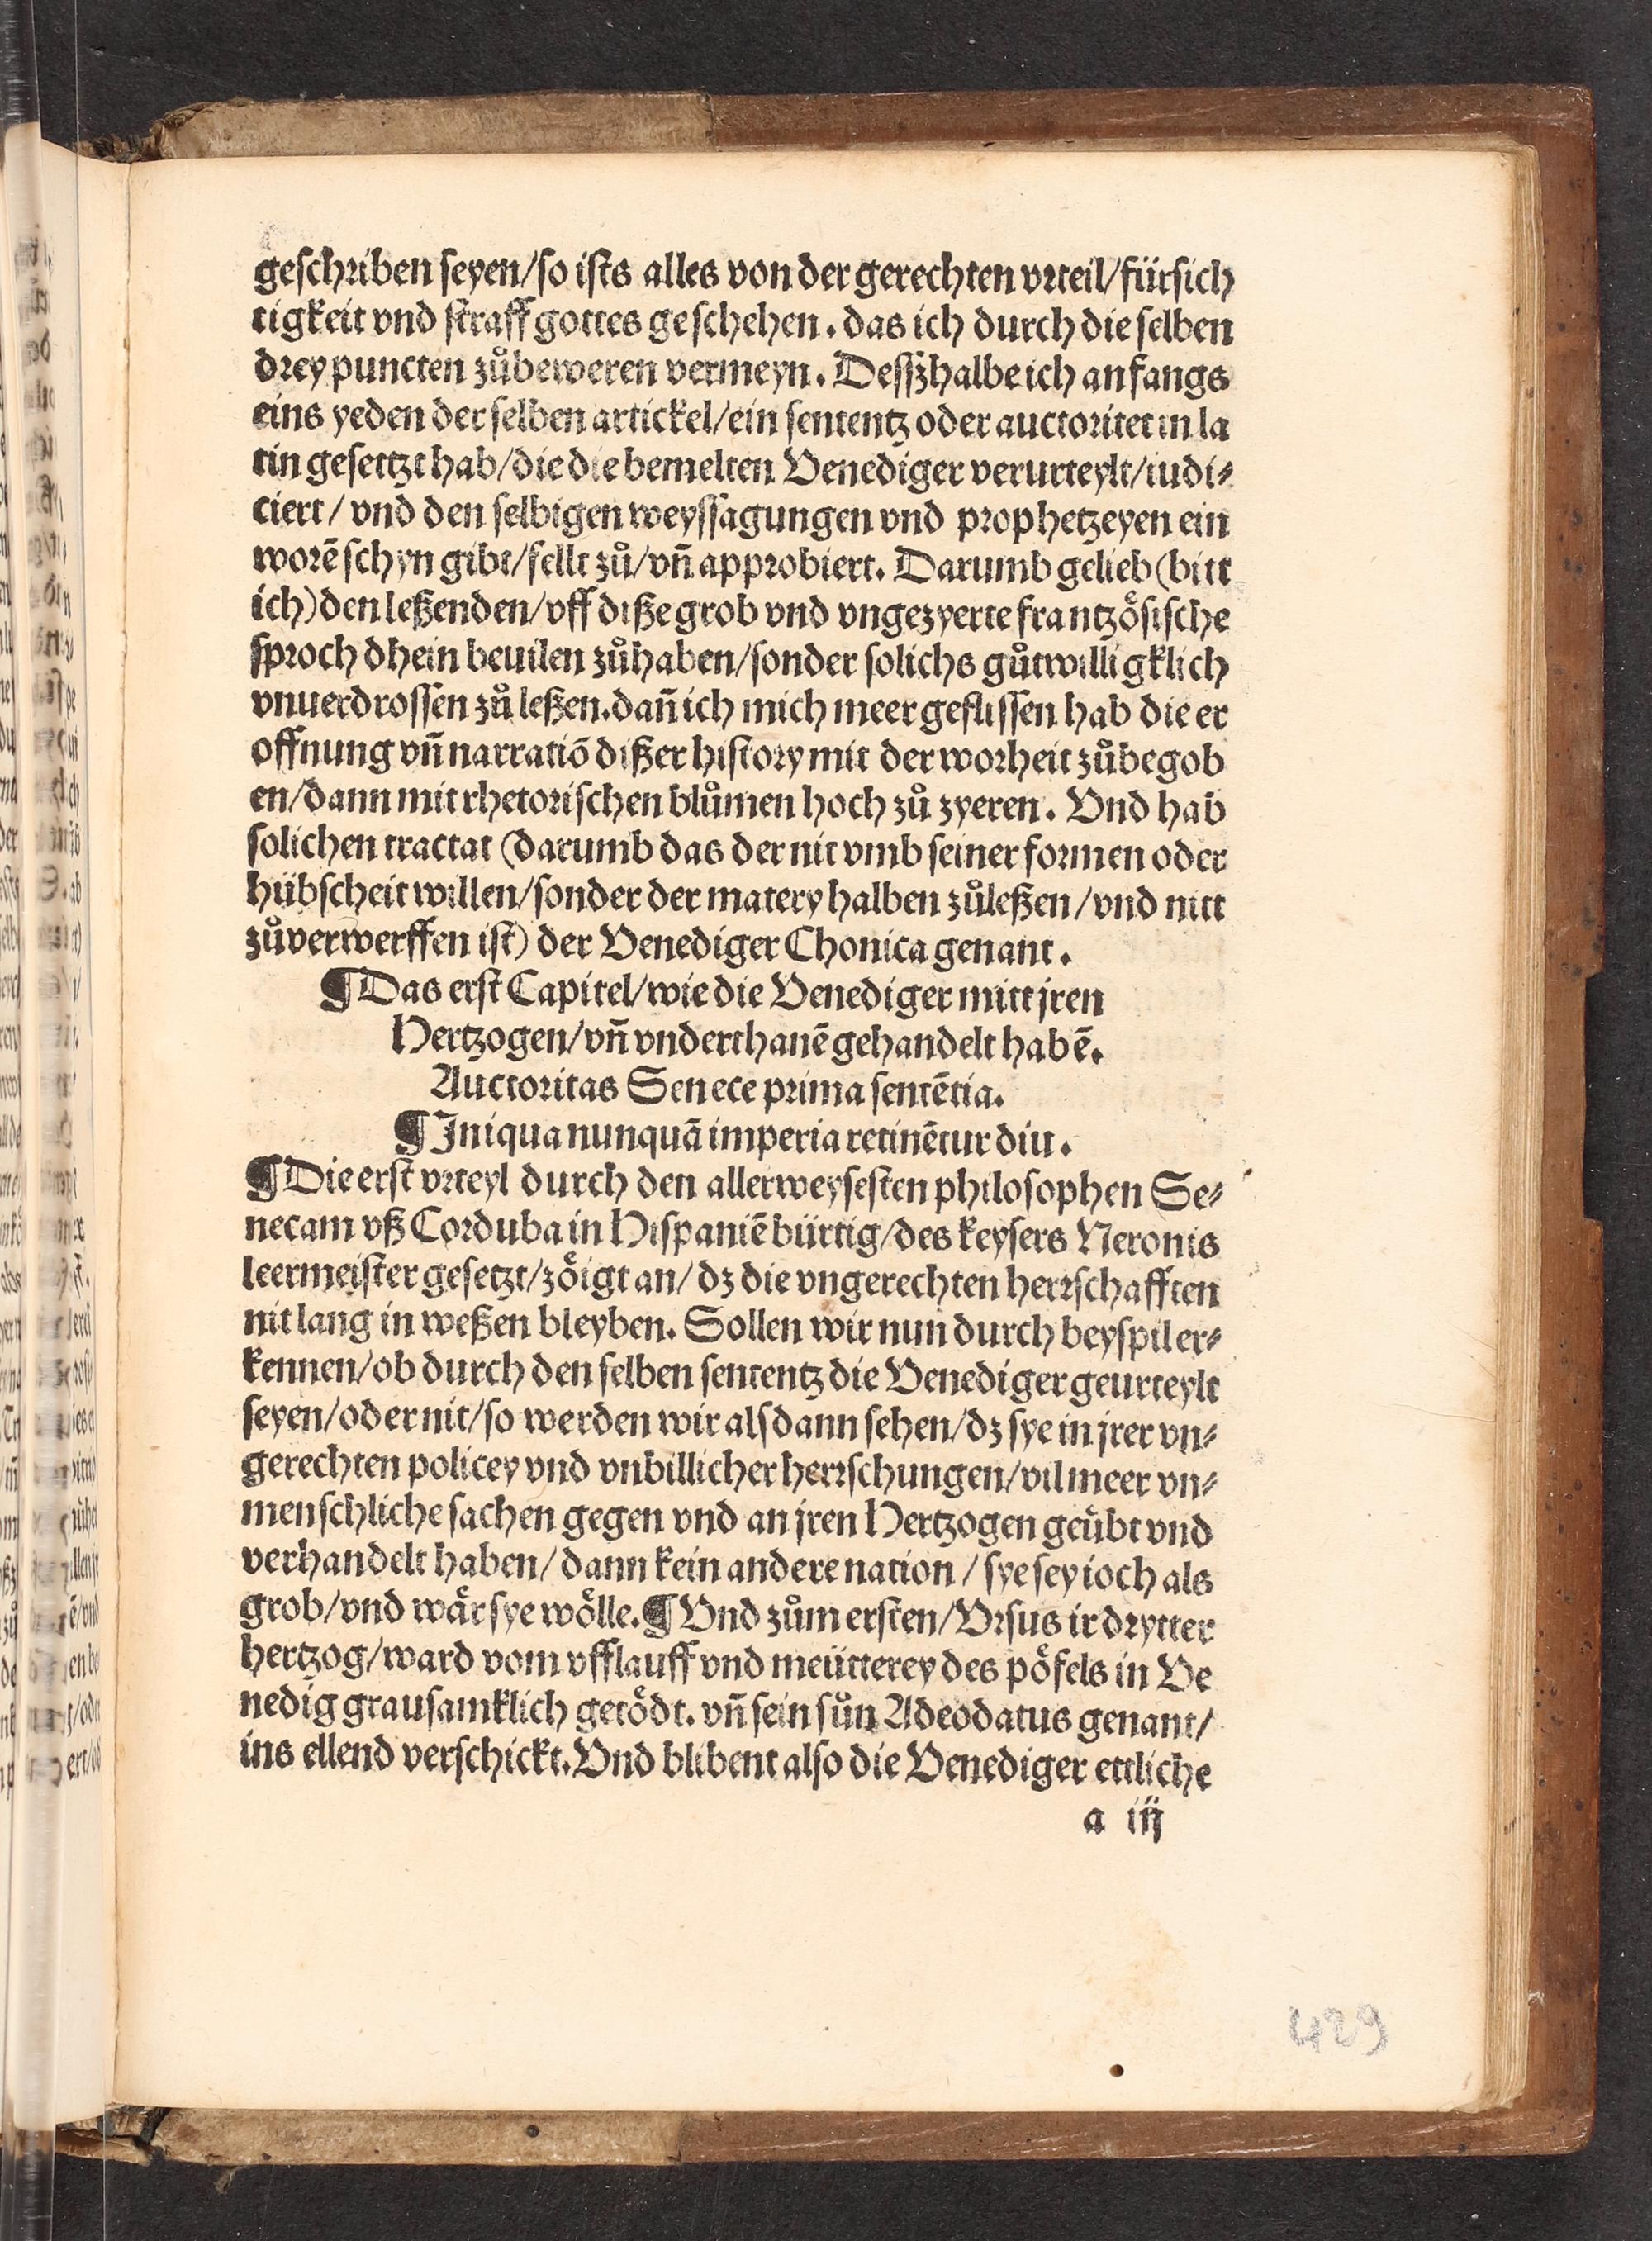 geschriben seyen/so ists alles von der gerechten vrteil/fürsich
tigkeit vnd straff gottes geschehen. das ich durch die selben
drey puncten zůbeweren vermeyn. Desszhalbe ich anfangs
eins yeden der selben artickel/ein sententz oder auctoritet in la
tin gesettzt hab/die die bemelten Venediger verurteylt/iudi⸗
ciert/ vnd den selbigen weyssagungen vnd prophetzeyen ein
worē schyn gibt/fellt zů/vñ approbiert. Darumb gelieb (bitt
ich) den leßenden/vff diße grob vnd vngezyerte frantzösische
sproch dhein beuilen zůhaben/sonder solichs gůtwilligklich
vnuerdrossen zů leßen. dañ ich mich meer geflissen hab die er
offnung vñ narratiō dißer history mit der worheit zůbegob
en/dann mit rhetorischen blůmen hoch zů zyeren. Vnd hab
solichen tractat (darumb das der nit vmb seiner formen oder
hübscheit willen/sonder der matery halben zůleßen/vnd nitt
zůverwerffen ist) der Venediger Chonica genant.
¶Das erst Capitel/wie die Venediger mitt jren
Hertzogen/vñ vnderthanē gehandelt habē.
Auctoritas Senece prima sentētia.
¶Iniqua nunquā imperia retinētur diu.
¶Die erst vrteyl durch den allerweysesten philosophen Se⸗
necam vß Corduba in Hispaniē bürtig/des keysers Neronis
leermeister gesetzt/zöigt an/ dz die vngerechten herrschafften
nit lang in weßen bleyben. Sollen wir nun durch beyspil er⸗
kennen/ob durch den selben sententz die Venediger geurteylt
seyen/oder nit/so werden wir alsdann sehen/dz sye in jrer vn⸗
gerechten policey vnd vnbillicher herrschungen/vil meer vn⸗
menschliche sachen gegen vnd an jren Hertzogen geübt vnd
verhandelt haben/dann kein andere nation/ sye sey ioch als
grob/vnd wär sye wölle. ¶Vnd zům ersten/Vrsus ir drytter
hertzog/ward vom vfflauff vnd meütterey des pöfels in Ve
nedig grausamklich getödt. vñ sein sůn Adeodatus genant/
ins ellend verschickt. Vnd blibent also die Venediger ettliche
a iij
429